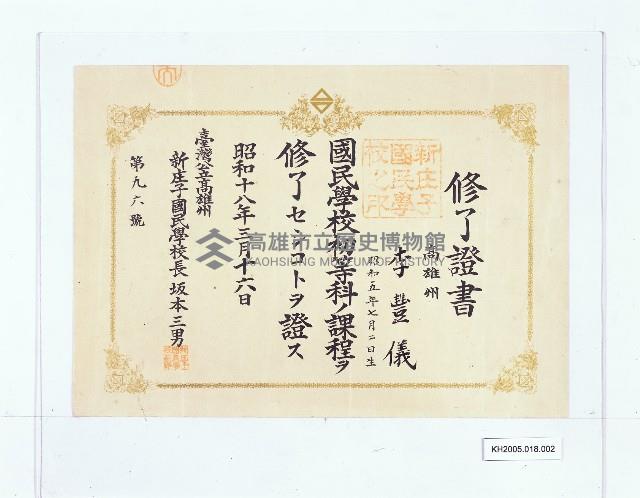 修了證書
高雄州
李豐儀
昭和五年七月二日生
國民學校初等科ノ課程ヲ
修了セシコトヲ證ス
昭和十八年三月十六日
臺灣公立高雄州
新庄子國民學校長 坂本三男
第九六號
新庄子
國民學
校之印
高雄市立歷史博物館
KAOHSIUNG MUSEUM OF HISTORY
KH2005.018.002